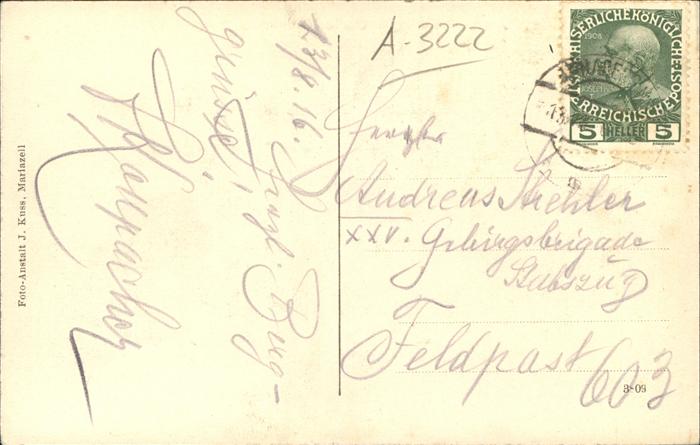 13/8.16.
Herzl. Berg-
grüsse,
A-3222
Andreas Strehler
XXV. Gebirgsbrigade
Stabszug
Feldpost 603
3-09
Foto-Anstalt J. Kuss, Mariazell
KAISERLICHE KÖNIGLICHE
ÖSTERREICHISCHE POST
1908
5 HELLER 5